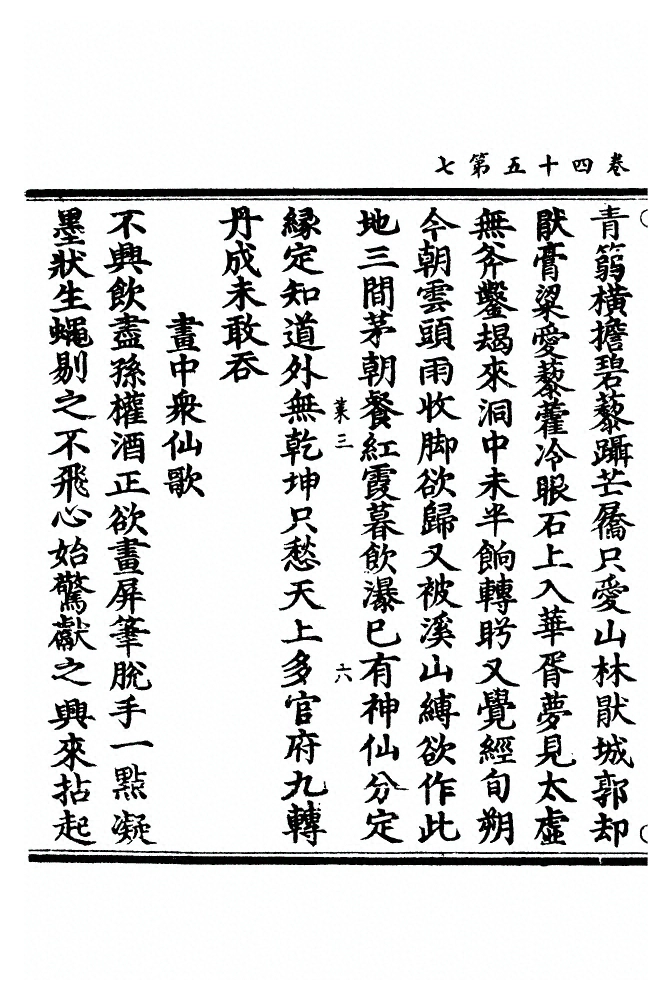 卷四十五第七
青篛橫擔碧藜躡芒屩只愛山林猒城郭却
猒膏粱愛藜藿冷眼石上入華胥夢見太虛
無斧鑿朅來洞中未半餉轉眄又覺經旬朔
今朝雲頭雨收脚欲歸又被溪山縛欲作此
地三間茅朝餐紅霞暮飲瀑已有神仙分定
業三
六
緣定知道外無乾坤只愁天上多官府九轉
丹成未敢吞
畫中衆仙歌
不興飲盡孫權酒正欲畫屏筆脫手一點凝
墨狀生蠅剔之不飛心始驚獻之興來拈起